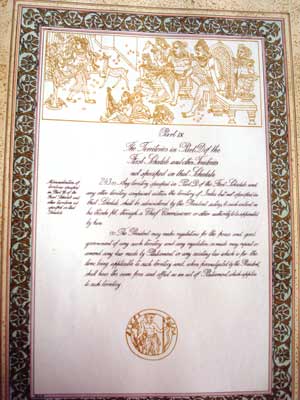 Part IX
The Territories in Part D of the
First Schedule and other Territories
not specified in that Schedule
Administration of
territories specified
in Part D of the
First Schedule
and other
territories not
specified in that
Schedule
243. (1) Any territory specified in Part D of the First Schedule and
any other territory comprised within the territory of India but not specified in
that Schedule shall be administered by the President acting, to such extent as
he thinks fit, through a Chief Commissioner or other authority to be appointed
by him.
(2) The President may make regulations for the peace and good
government of any such territory and any regulation so made may repeal or
amend any law made by Parliament or any existing law which is for the
time being applicable to such territory and, when promulgated by the President,
shall have the same force and effect as an Act of Parliament which applies
to such territory.